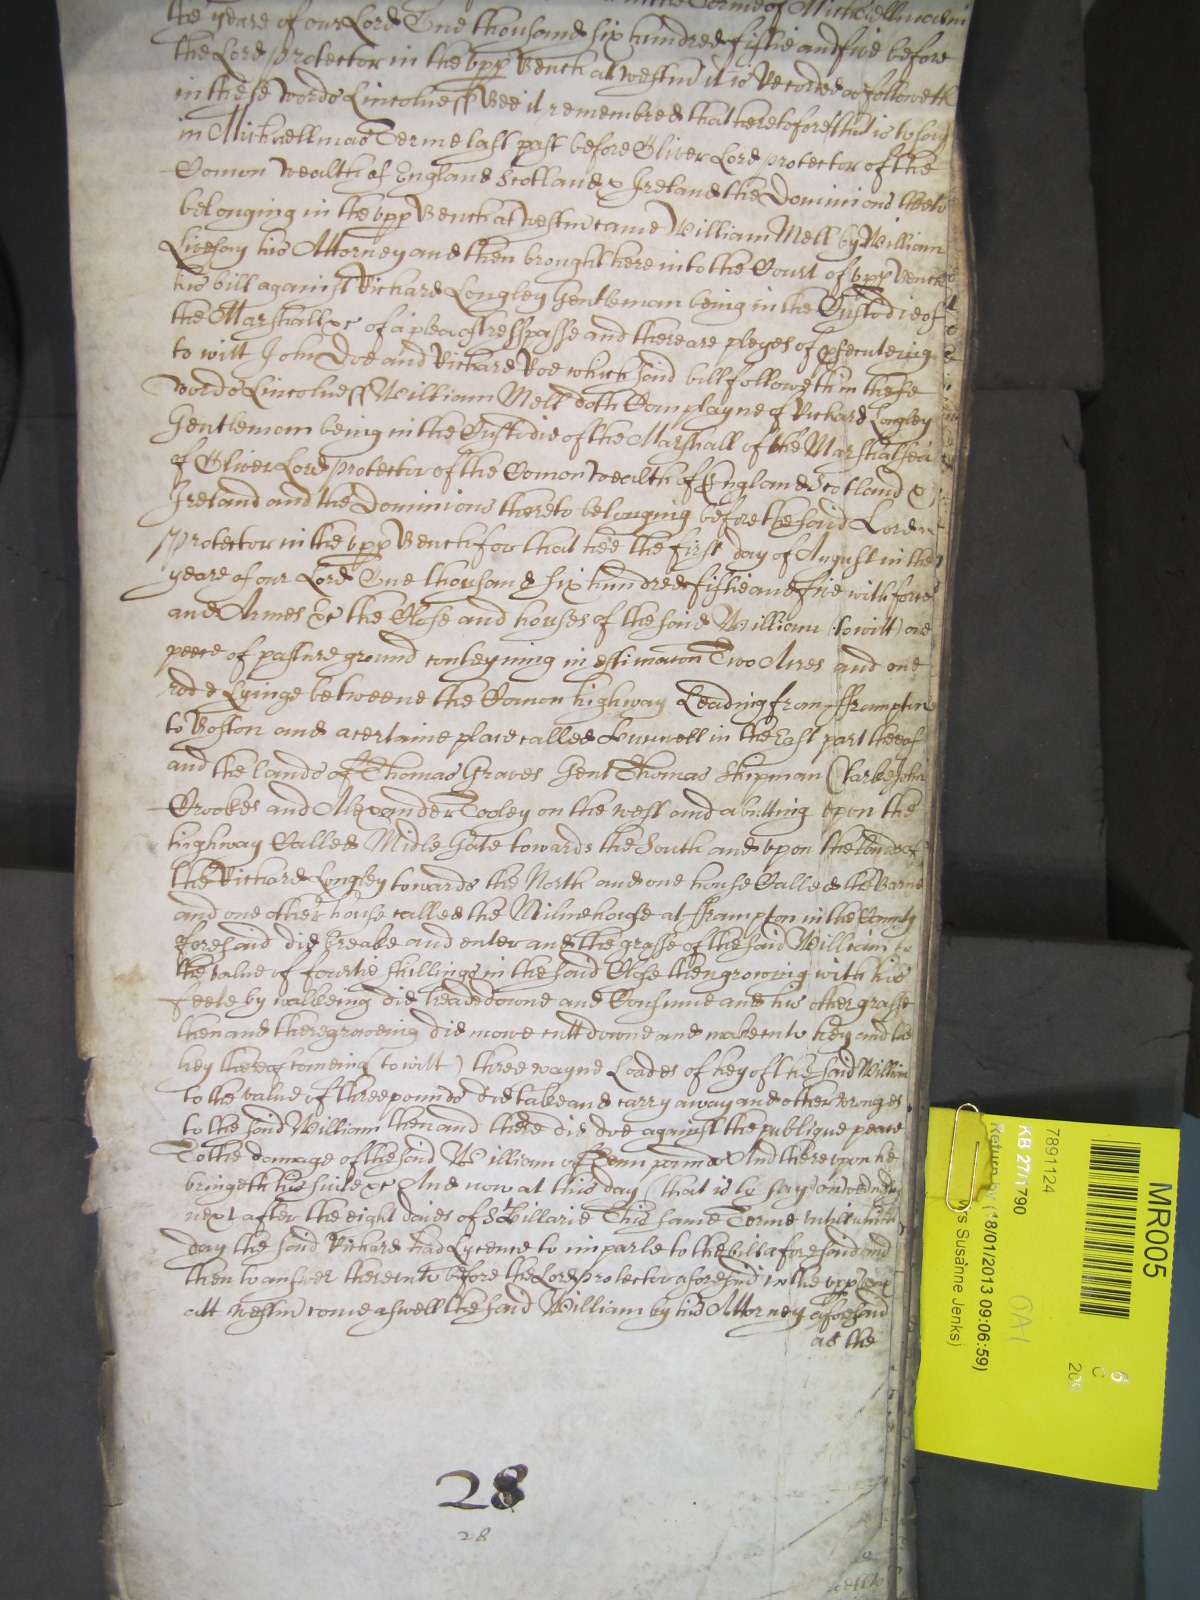 in the Terme of Michaellmas in
the yeare of our Lord One thousand six hundred fiftie and five before
the Lord Protector in the upp Bench at Westmr it is Recorded as followeth
in these words Lincolne ss Bee it remembred that heretofore that is to say
in Michaellmas Terme last past before Oliver Lord Protector of the
Comon Wealth of England Scotland & Ireland the Dominions thereto
belonging in the upp Bench at Westmr came William Mell by William
Livesay his Attorney and then brought here into the Court of upp Bench
his bill against Richard Longley Gentleman being in the Custodie of
the Marshall &c of a plea of tresspasse and there are pleges of psecuteing
to witt John Doe and Richard Roe which said bill followeth in these
words Lincolne ss William Mell doth Complayne of Richard Longley
Gentleman being in the Custodie of the Marshall of the Marshalsea
of Oliver Lord Protector of the Comon Wealth of England Scotland &
Ireland and the Dominions thereto belonging before the said Lord
Protector in the upp Bench for that hee the first day of August in the
yeare of our Lord One thousand six hundred fiftie and five with force
and Armes &c the Close and houses of the said William (to witt) one
peece of pasture ground conteyning in estimacon Two Acres and one
rode Lyinge betweene the Comon highway Leading from Frampton
to Boston and a certaine place called in the East part thereof
and the lands of Thomas Graves Gent Thomas Shipman Clarke John
Crookes and Alexander Tooley on the west and abutting upon the
highway Called Midle Gate towards the South and upon the lands of
the Richard Longley towards the North and one house Called the Barne
and one other house called the Milnehouse at Frampton in the County
aforesaid did breake and enter and the grasse of the said William to
the value of fourtie shillings in the said Close then growing with his
feete by walkeing did treade downe and Consume and his other grasse
then and there groweing did mowe cutt downe and make into hey and the
hey thereof comeing (to witt) three wayne Loades of hey of the said William
to the value of three pounds did take and carry away and other wronges
to the said William then and there did doe against the publique peace
To the damage of the said William of Tenn pounds And thereupon he
bringeth his suite &c And now at this day (that is to say) on wednesday
next after the eight daies of St Hillarie This same Terme untill which
day the said Richard had Lycence to imparle to the bill aforesaid and
then to answer thereunto before the Lord Protector aforesaid in the upp Bench
att Westmr come aswell the said William by his Attorney aforesaid
as the
28
28
MR005
7891124
KB 27/1790
Return by (18/01/2013 09:06:59)
rs Susanne Jenks)
OA1
6
C